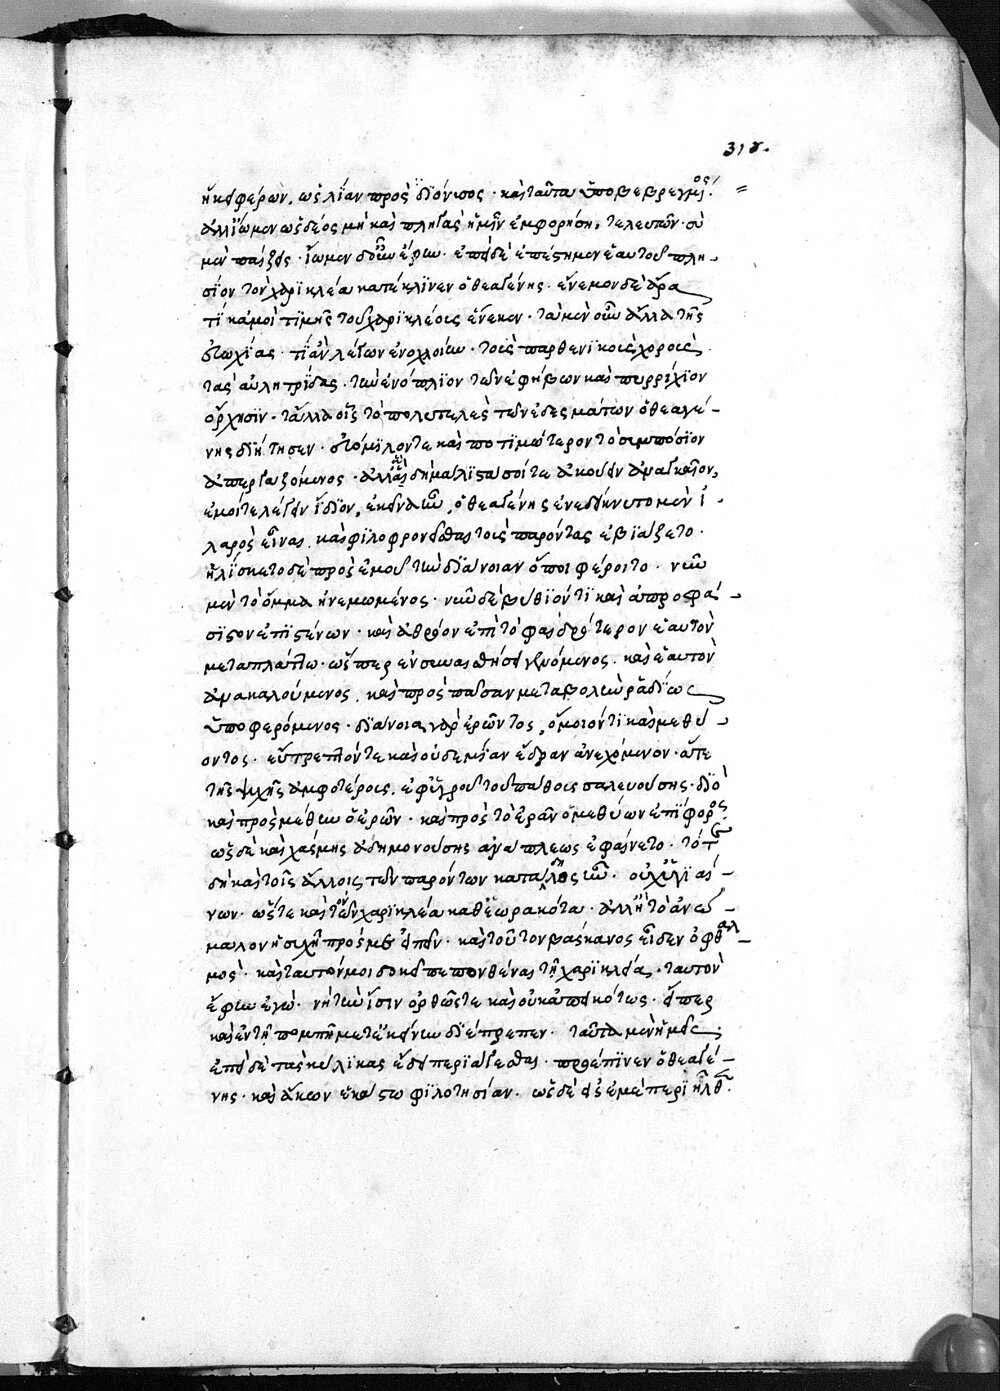 ἥκει φέρων, ὡς λίαν πρὸς διόνυσος· καὶ ταῦτα ὑποβεβρεγμένος.
ἀλλ' ἴωμεν ὡς δέος μὴ καὶ πληγὰς ἡμῖν ἐμφορήση, τελευτῶν· σὺ
μὲν παίζεις· ἴωμεν δ' οὖν ἔφην· ἐπεὶ δὲ ἐπέστημεν ἑαυτοῦ πλη-
σίον τὸν χαρικλέα κατέκλινεν ὁ θεαγένης· ἔνεμον δὲ ἄρα
τὶ κἀμοὶ τιμῆς τοῦ χαρικλέους ἕνεκεν· τὰ μὲν οὖν ἄλλα τῆς
εὐωχίας· τί ἂν λέγων ἐνοχλοίην· τοὺς παρθενικοὺς χοροὺς
τὰς αὐλητρίδας· τὴν ἐνόπλιον τῶν ἐφήβων καὶ πυρρίχιον
ὄρχησιν· τἄλλα οἷς τὸ πολυτελὲς τῶν ἐδεσμάτων ὁ θεαγέ-
νης διήτησεν· εὐόμιλόν τε καὶ ποτιμώτερον τὸ συμπόσιον
ἀπεργαζόμενος· ἀλλ' ἃ δὴ μάλιστα σοί τε ἀκούειν ἀναγκαῖον,
ἐμοί τε λέγειν ἥδιον, ἐκεῖνα ἦν, ὁ θεαγένης ἐνεδείκνυτο μὲν ἱ-
λαρὸς εἶναι. καὶ φιλοφρονεῖσθαι τοὺς παρόντας ἐβιάζετο·
ἡλίσκετο δὲ πρὸς ἐμοῦ τὴν διάνοιαν ὅποι φέροιτο· νῦν
μὲν τὸ ὄμμα ἠνεμωμένος· νῦν δὲ βύθιόν τι καὶ ἀπροφά-
σιστον ἐπιστένων· καὶ ἀθρόον ἐπὶ τὸ φαιδρότερον ἑαυτὸν
μεταπλάττων· ὥσπερ ἐν συναισθήσει γινόμενος. καὶ ἑαυτὸν
ἀνακαλούμενος. καὶ πρὸς πᾶσαν μεταβολὴν ῥαδίως
ὑποφερόμενος· διάνοια γὰρ ἐρῶντος, ὅμοιόν τι καὶ μεθύ-
οντος· εὔτρεπτόν τε καὶ οὐδεμίαν ἕδραν ἀνεχόμενον· ἅτε
τῆς ψυχῆς ἀμφοτέροις. ἐφ' ὑγροῦ τοῦ πάθους σαλευούσης· διὸ
καὶ πρὸς μέθην ὁ ἐρῶν· καὶ πρὸς τὸ ἐρᾶν ὁ μεθύων ἐπίφορος.
ὡς δὲ καὶ χάσμης ἀδημονούσης ἀνάπλεως ἐφαίνετο· τότε
δὴ καὶ τοῖς ἄλλοις τῶν παρόντων κατάδηλος ἦν· οὐχ ὑγιαί-
νων· ὥστε καὶ τὸν χαρικλέα καθεωρακότα· ἀλλ' ἢ τὸ ἀνώ-
μαλον ἡσυχῆ πρός με εἰπεῖν· καὶ τοῦτον βάσκανος εἶδεν ὀφθαλ-
μός· καὶ ταυτόν μοι δοκεῖ πεπονθέναι τῆ χαρικλεία· ταυτὸν
ἔφην ἐγώ· νὴ τὴν ἶσιν ὀρθῶς τε καὶ οὐκ ἀπεικότως· εἴπερ
καὶ ἐν τῆ πομπῆ μετ' ἐκείνην διέπρεπεν· ταῦτα μὲν ἡμεῖς.
ἐπεὶ δὲ τὰς κύλικας ἔδει περιάγεσθαι· προέπινεν ὁ θεαγέ-
νης· καὶ ἄκων ἑκάστω φιλοτησίαν. ὡς δὲ εἰς ἐμὲ περιῆλθεν.